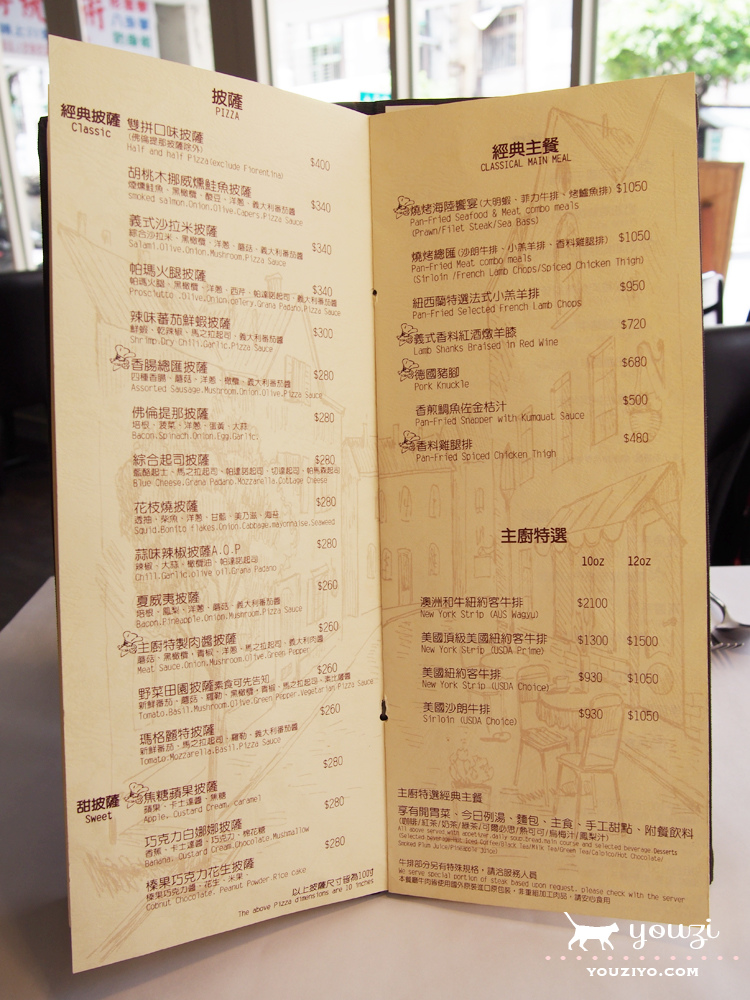 披薩
PIZZA
經典披薩
Classic
雙拼口味披薩
(佛倫提那披薩除外)
Half and half Pizza(exclude Fiorentina)
$400
胡桃木挪威燻鮭魚披薩
煙燻鮭魚、黑橄欖、酸豆、洋蔥、義大利番茄醬
smoked salmon.Onion.Olive.Capers.Pizza Sauce
$340
義式沙拉米披薩
綜合沙拉米、黑橄欖、洋蔥、蘑菇、義大利番茄醬
Salami.Olive.Onion.Mushroom.Pizza Sauce
$340
帕瑪火腿披薩
帕瑪火腿、黑橄欖、洋蔥、西芹、帕達諾起司、義大利番茄醬
Prosciutto .Olive.Onion.celery.Grana Padano.Pizza Sauce
$340
辣味蕃茄鮮蝦披薩
鮮蝦、乾辣椒、馬之拉起司、義大利番茄醬
Shrimp.Dry Chili.Garlic.Pizza Sauce
$300
香腸總匯披薩
四種香腸、蘑菇、洋蔥、橄欖、義大利番茄醬
Assorted Sausage.Mushroom.Onion.Olive.Pizza Sauce
$280
佛倫提那披薩
培根、菠菜、洋蔥、蛋黃、大蒜
Bacon.Spinach.Onion.Egg.Garlic.
$280
綜合起司披薩
藍酪起士、馬之拉起司、帕達諾起司、切達起司、帕馬森起司
Blue Cheese.Grana Padano.Mozzarella.Cottage Cheese
$280
花枝燒披薩
透抽、柴魚、洋蔥、甘藍、美乃滋、海苔
Squid.Bonito flakes.Onion.Cabbage.mayonnaise.Seaweed
$280
蒜味辣椒披薩A.O.P
辣椒、大蒜、橄欖油、帕達諾起司
Chili.Garlic.olive oil.Grana Padano
$280
夏威夷披薩
培根、鳳梨、洋蔥、蘑菇、義大利番茄醬
Bacon.Pineapple.Onion.Mushroom.Pizza Sauce
$260
主廚特製肉醬披薩
蘑菇、黑橄欖、青椒、洋蔥、馬之拉起司、義大利肉醬
Meat Sauce.Onion.Mushroom.Olive.Green Pepper
$260
野菜田園披薩素食可先告知
新鮮番茄、蘑菇、羅勒、黑橄欖、青椒、馬之拉起司、素比薩醬
Tomato.Basil.Mushroom.Olive.Green Pepper.Vegetarian Pizza Sauce
$260
瑪格麗特披薩
新鮮番茄、馬之拉起司、羅勒、義大利番茄醬
Tomato.Mozzarella.Basil.Pizza Sauce
$260
甜披薩
Sweet
焦糖蘋果披薩
蘋果、卡士達醬、焦糖
Apple. Custard Cream. caramel
$280
巧克力白娜娜披薩
香蕉、卡士達醬、巧克力、棉花糖
Banana. Custard Cream.Chocolate.Mushmallow
$280
榛果巧克力花生披薩
榛果巧克力醬、花生、米果、
Cobnut Chocolate. Peanut Powder.Rice cake
$280
以上披薩尺寸皆為10吋
The above Pizza dimensions are 10 inches
經典主餐
CLASSICAL MAIN MEAL
燒烤海陸饗宴(大明蝦、菲力牛排、烤鱸魚排) $1050
Pan-Fried Seafood & Meat combo meals
(Prawn/Filet Steak/Sea Bass)
燒烤總匯(沙朗牛排、小羔羊排、香料雞腿排) $1050
Pan-Fried Meat combo meals
(Sirloin /French Lamb Chops/Spiced Chicken Thigh)
紐西蘭特選法式小羔羊排 $950
Pan-Fried Selected French Lamb Chops
義式香料紅酒燉羊膝 $720
Lamb Shanks Braised in Red Wine
德國豬腳 $680
Pork Knuckle
香煎鯛魚佐金桔汁 $500
Pan-Fried Snapper with Kumquat Sauce
香料雞腿排 $480
Pan-Fried Spiced Chicken Thigh
主廚特選
10oz 12oz
澳洲和牛紐約客牛排 $2100
New York Strip (AUS Wagyu)
美國頂級美國紐約客牛排 $1300 $1500
New York Strip (USDA Prime)
美國紐約客牛排 $930 $1050
New York Strip (USDA Choice)
美國沙朗牛排 $930 $1050
Sirloin (USDA Choice)
主廚特選經典主餐
享有開胃菜、今日例湯、麵包、主食、手工甜點、附餐飲料
(咖啡/紅茶/奶茶/綠茶/可爾必思/熱可可/烏梅汁/鳳梨汁)
All above served with appetizer.daily soup.bread.main course and selected beverage Desserts
(Selected beverage:Hot,Iced Coffee/Black Tea/Milk Tea/Green Tea/Calpico/Hot Chocolate/
Smoked Plum Juice/Pineapple Juice)
牛排部分另有特殊規格，請洽服務人員
We serve special portion of steak based upon request, please check with the server
本餐廳牛肉皆使用國外原裝進口原包裝，非重組加工肉品，請安心食用
youzi
YOUZIYO.COM